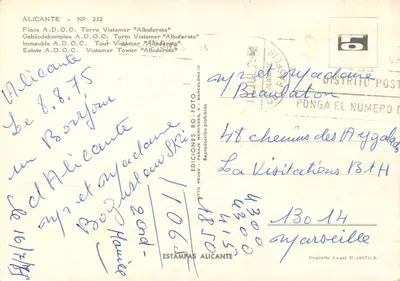 ALICANTE - Nº 232
Finca A.D.O.C. Torre Vistamar "Albufereta"
Gebäudekomplex A.D.O.C. Turm Vistamar "Albufereta"
Immeuble A.D.O.C. Tour Vistamar "Albufereta"
Estate A.D.O.C. Vistamar Tower "Albufereta"
DISTRITO POST
PONGA EL NUMERO D
Alicante
Le 8.8.75
un Bonjour
d'Alicante
Mr et Madame
EDICIONES
FOTO
Reproducción prohibida
Mr et Madame
41 chemins des
La Visitations Bt H
13014
Marseille
4300
4200
415
1850
11065
Le 16/7/75
ESTAMPAS ALICANTE
Depósito Legal B.